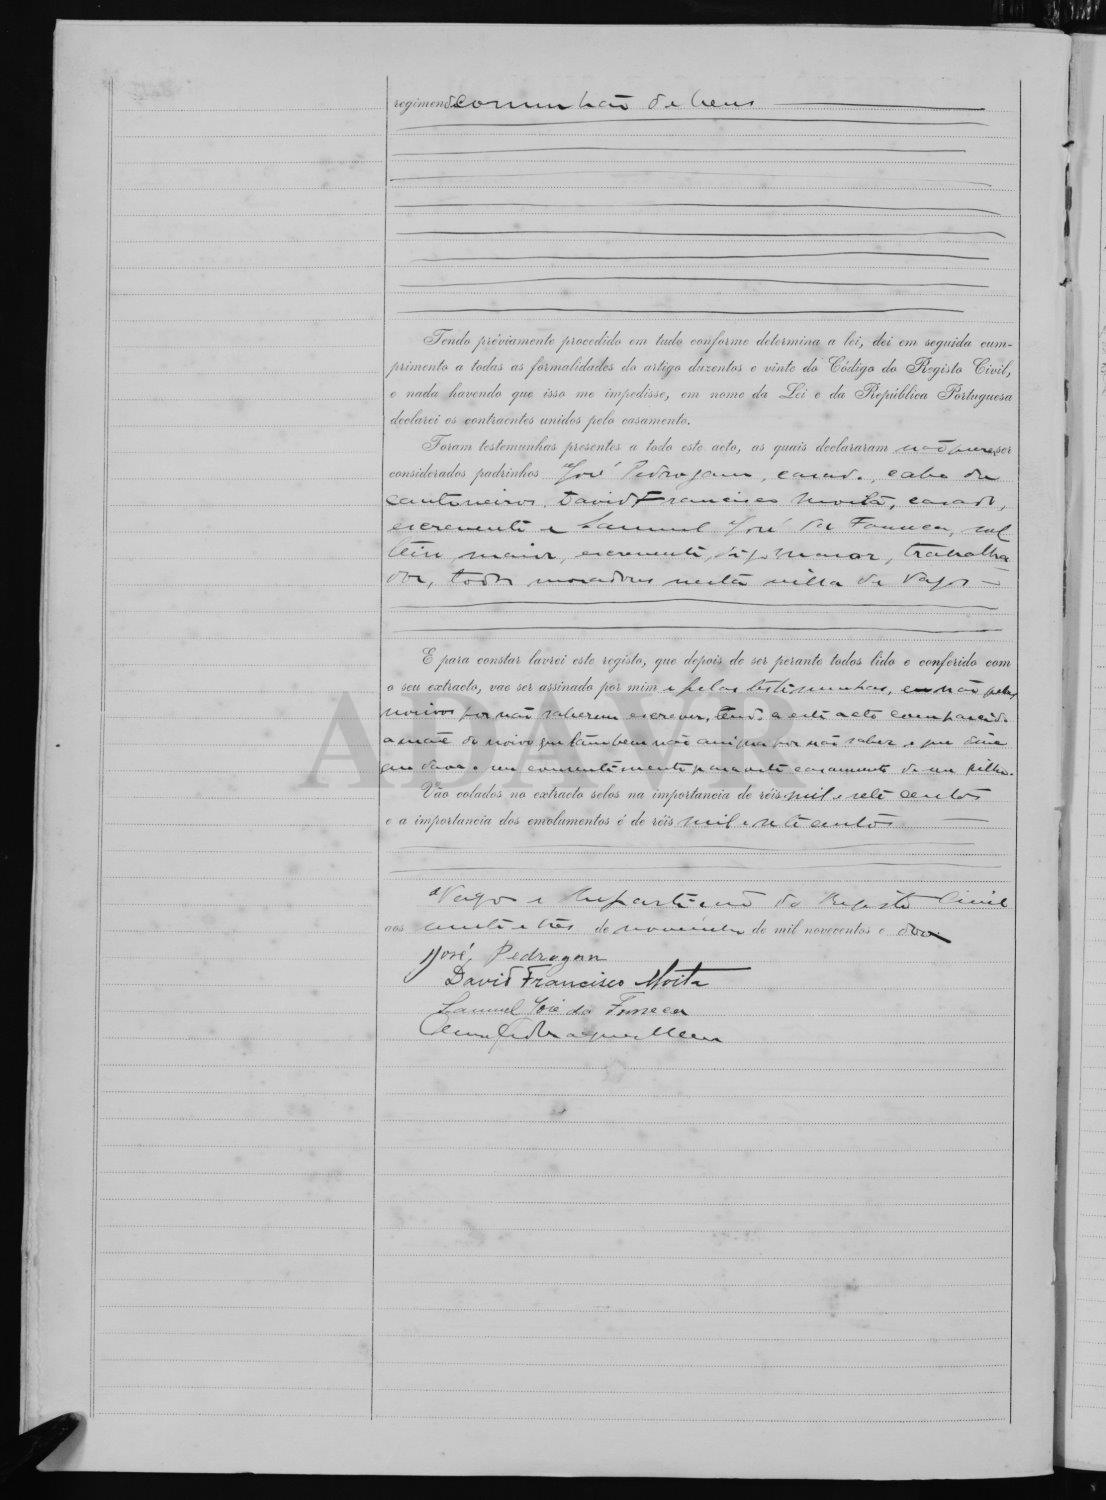 regimen de comunhão de bens
Tendo préviamente procedido em tudo conforme determina a lei, dei em seguida cum-
primento a todas as formalidades do artigo duzentos e vinte do Código do Registo Civil,
e nada havendo que isso me impedisse, em nome da Lei e da República Portuguesa
declarei os contraentes unidos pelo casamento.
Foram testemunhas presentes a todo este acto, as quais declararam não quererem ser
considerados padrinhos José Pedragam, casado, cabo de
cantoneiros, David Francisco Moita, casado,
escrevente e Samuel José da Fonseca, sol
teiro, maior, escrevente, digo maior, trabalha
dor, todos moradores nesta villa de Vagos
E para constar lavrei este registo, que depois de ser perante todos lido e conferido com
o seu extracto, vae ser assinado por mim e pelas testemunhas, e não pelos
noivos por não saberem escrever, tendo a este acto comparecido
a mãe do noivo que tambem não assigna por não saber e que disse
que dava o seu consentimento para este casamento de seu filho.
Vão colados no extracto selos na importancia de réis mil e sete centos
e a importancia dos emolumentos é de réis mil e sete centos
Vagos e Repartição do Registo Civil
aos vinte e três de novembro de mil novecentos e doze
José Pedragam
David Francisco Moita
Samuel José da Fonseca
ADAVR